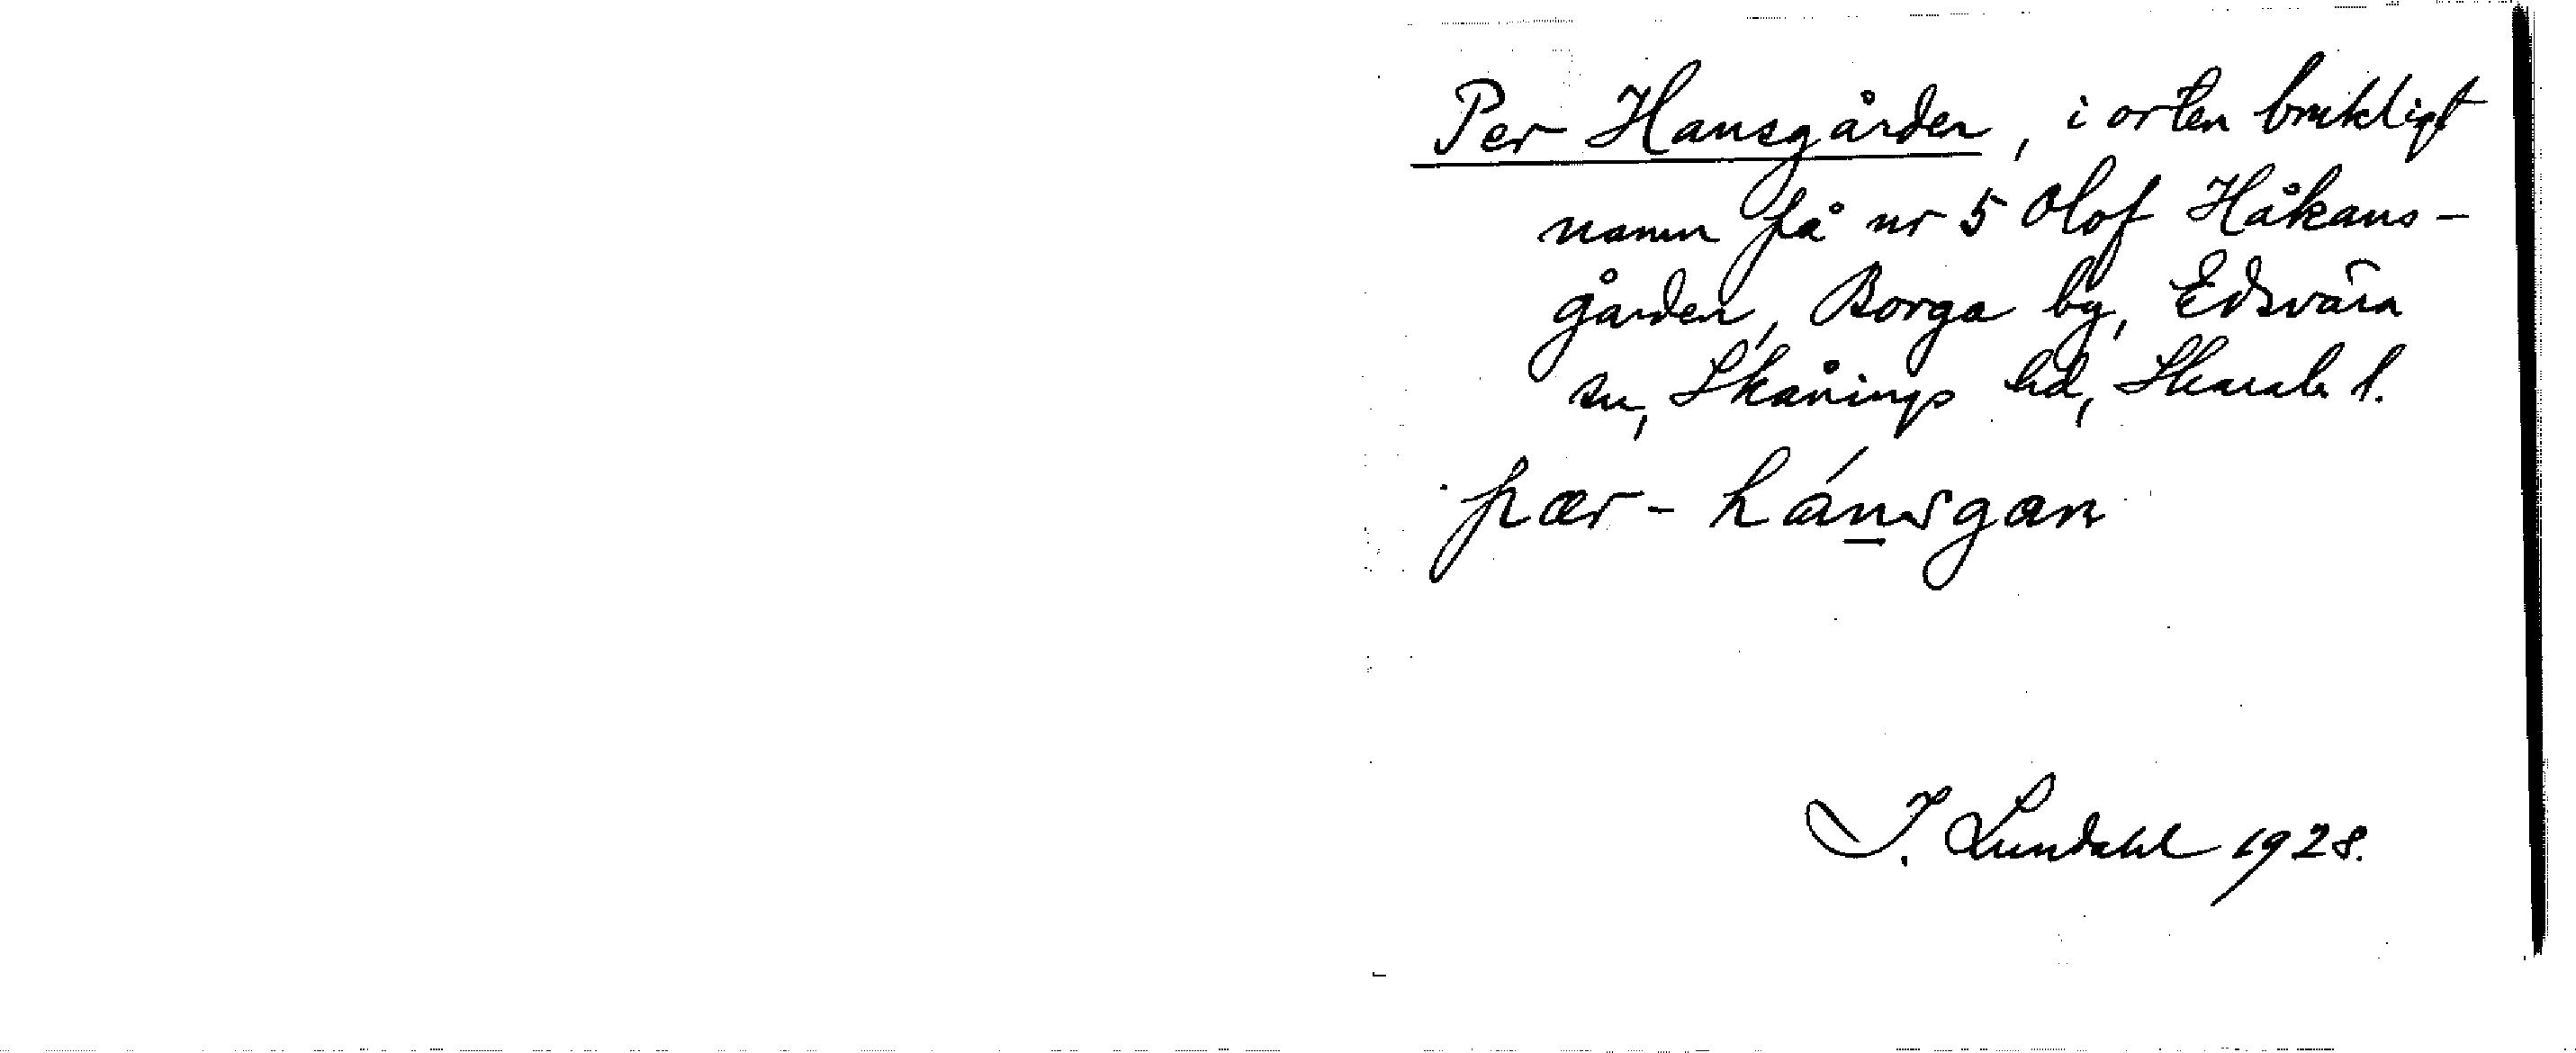 Per Hansgården, i orten brukligt
namn på nr 5 Olof Håkans-
gården, Borga by, Edsvära
sn, Skånings hd, Skarab. l.
pær - hánsgan
I. Lundahl 1928.